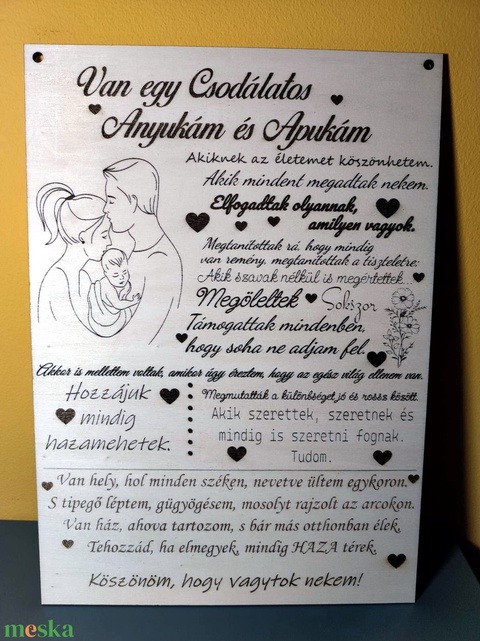 Van egy Csodálatos
Anyukám és Apukám
Akiknek az életemet köszönhetem.
Akik mindent megadtak nekem.
Elfogadtak olyannak,
amilyen vagyok.
Megtanítottak rá, hogy mindig
van remény, megtanítottak a tiszteletre:
Akik szavak nélkül is megértettek.
Megöleltek Sokszor
Támogattak mindenben,
hogy soha ne adjam fel.
Akkor is mellettem voltak, amikor úgy éreztem, hogy az egész világ ellenem van.
Hozzájuk
mindig
hazamehetek.
Megmutatták a különbséget jó és rossz között.
Akik szerettek, szeretnek és
mindig is szeretni fognak.
Tudom.
Van hely, hol minden széken, nevetve ültem egykoron.
S tipegő léptem, gügyögésem, mosolyt rajzolt az arcokon.
Van ház, ahova tartozom, s bár más otthonban élek,
Tehozzád, ha elmegyek, mindig HAZA térek.
Köszönöm, hogy vagytok nekem!
meska